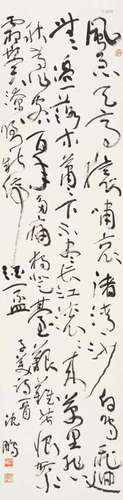 風急天高猿嘯哀渚清沙白鳥飛迴
無邊落木蕭蕭下不盡長江滾滾來萬里悲
秋常作客百年多病獨登臺艱難苦恨繁
霜鬢潦倒新停濁酒盃
子美詩一首
沈鵬